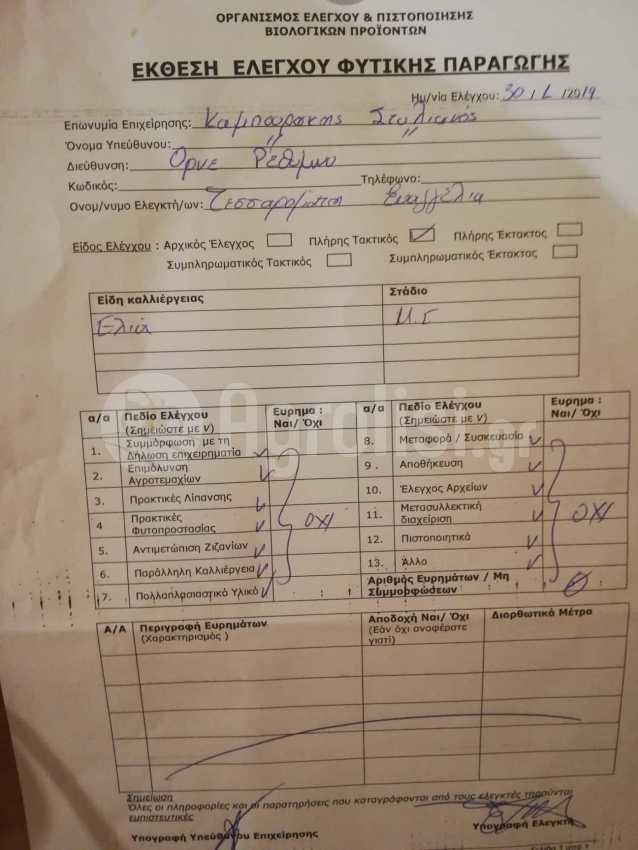 ΟΡΓΑΝΙΣΜΟΣ ΕΛΕΓΧΟΥ & ΠΙΣΤΟΠΟΙΗΣΗΣ
ΒΙΟΛΟΓΙΚΩΝ ΠΡΟΪΟΝΤΩΝ
ΕΚΘΕΣΗ ΕΛΕΓΧΟΥ ΦΥΤΙΚΗΣ ΠΑΡΑΓΩΓΗΣ
Ημ/νία Ελέγχου: 30/ /2019
Επωνυμία Επιχείρησης: Καμπουράκης Στυλιανός
Όνομα Υπεύθυνου: " "
Διεύθυνση: Ορνε Ρέθυμνο
Κωδικός: Τηλέφωνο:
Ονομ/νυμο Ελεγκτή/ων: Ευαγγελία
Είδος Ελέγχου : Αρχικός Έλεγχος Πλήρης Τακτικός ✓ Πλήρης Έκτακτος
Συμπληρωματικός Τακτικός Συμπληρωματικός Έκτακτος
Είδη καλλιέργειας Στάδιο
Ελιά Μ.Γ
α/α Πεδίο Ελέγχου (Σημειώστε με ν) Ευρημα : Ναι/ Όχι α/α Πεδίο Ελέγχου (Σημειώστε με ν) Ευρημα : Ναι/ Όχι
1. Συμμόρφωση με τη Δήλωση επιχειρηματία ✓ 8. Μεταφορά / Συσκευασία ✓
2. Επιμόλυνση Αγροτεμαχίων ✓ 9 . Αποθήκευση ✓
3. Πρακτικές Λίπανσης ✓ 10. Έλεγχος Αρχείων ✓
4 Πρακτικές Φυτοπροστασίας ✓ ΟΧΙ 11. Μετασυλλεκτική διαχείριση ✓ ΟΧΙ
5. Αντιμετώπιση Ζιζανίων ✓ 12. Πιστοποιητικά ✓
6. Παράλληλη Καλλιέργεια ✓ 13. Άλλο ✓
7. Πολλαπλασιαστικό Υλικό ✓ Αριθμός Ευρημάτων / Μη Συμμορφώσεων 0
Α/Α Περιγραφή Ευρημάτων (Χαρακτηρισμός ) Αποδοχή Ναι/ Όχι (Εάν όχι αναφέρατε γιατί) Διορθωτικά Μέτρα
Σημείωση
Όλες οι πληροφορίες και οι παρατηρήσεις που καταγράφονται από τους ελεγκτές τηρούνται
εμπιστευτικές
Υπογραφή Υπεύθυνου Επιχείρησης Υπογραφή Ελεγκτή
Agrolisi.gr